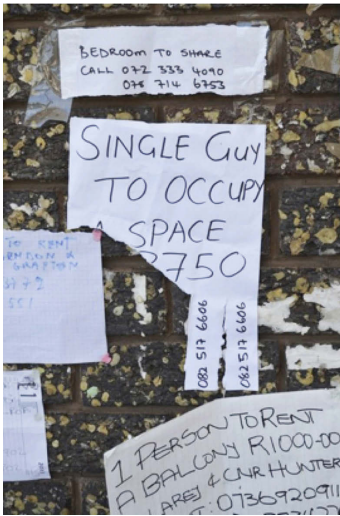 BEDROOM TO SHARE
CALL 072 333 4090
078 714 6753
SINGLE GUY
TO OCCUPY
A SPACE
750
082 517 6606
082 517 6606
TO RENT
GRAFTON
551
1 PERSON TO RENT
A BALCONY R1000-00
& CNR HUNTER
: 0736920911